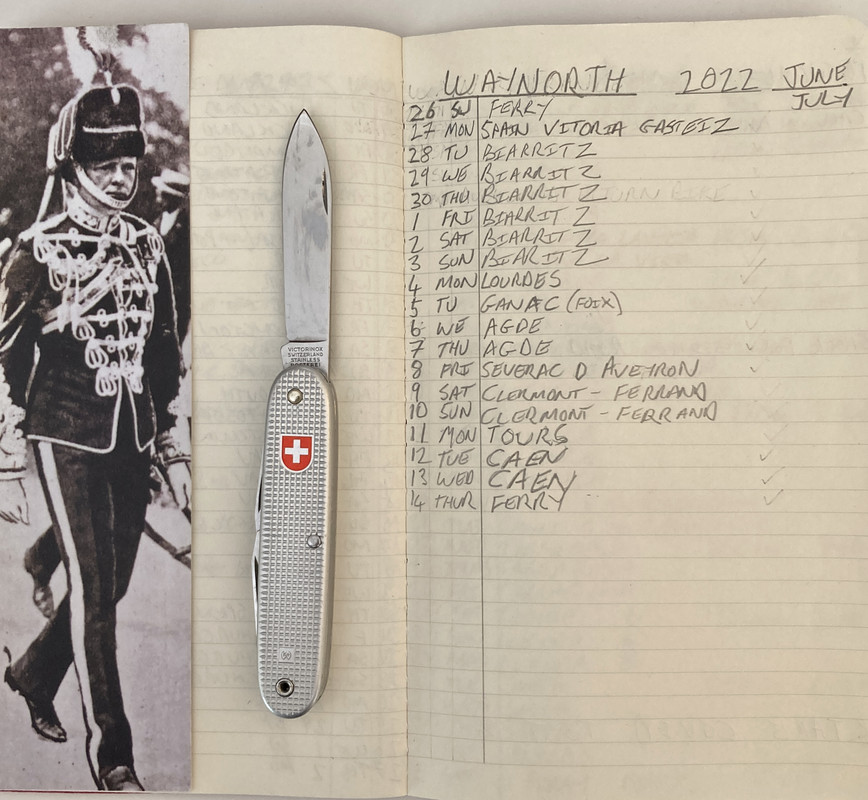 WAYNORTH 2022 JUNE
JULY
26 SU FERRY
27 MON SPAIN VITORIA GASTEIZ
28 TU BIARRITZ
29 WE BIARRITZ
30 THU BIARRITZ
1 FRI BIARRITZ
2 SAT BIARRITZ
3 SUN BIARRITZ
4 MON LOURDES
5 TU GANAC (FOIX)
6 WE AGDE
7 THU AGDE
8 FRI SEVERAC D AVEYRON
9 SAT CLERMONT - FERRAND
10 SUN CLERMONT - FERRAND
11 MON TOURS
12 TUE CAEN
13 WED CAEN
14 THUR FERRY
VICTORINOX
SWITZERLAND
STAINLESS